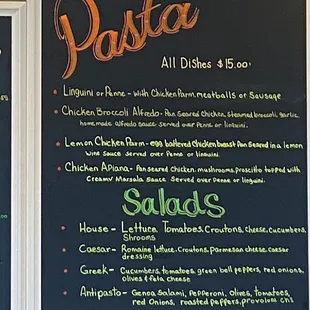 Pasta
All Dishes $15.00
Linguini or Penne - with Chicken Parm, meatballs or Sausage
Chicken Broccoli Alfredo - Pan Seared Chicken, steamed broccoli, garlic,
homemade alfredo sauce served over Penne or linguini.
Lemon Chicken Parm - egg battered chicken breast Pan Seared in a lemon
wine sauce served over Penne or linguini.
Chicken Apiana - Pan seared chicken, mushrooms, proscitto topped with
Creamy Marsala Sauce Served over Penne or linguini.
Salads
House - Lettuce, Tomatoes, Croutons, cheese, cucumbers,
Shrooms
Caesar - Romaine lettuce, Croutons, Parmesan cheese, caesar
dressing
Greek - Cucumbers, tomatoes, green bell peppers, red onions,
olives & feta cheese
Antipasto - Genoa Salami, Pepperoni, Olives, Tomatoes,
red Onions, roasted peppers, provolone chs